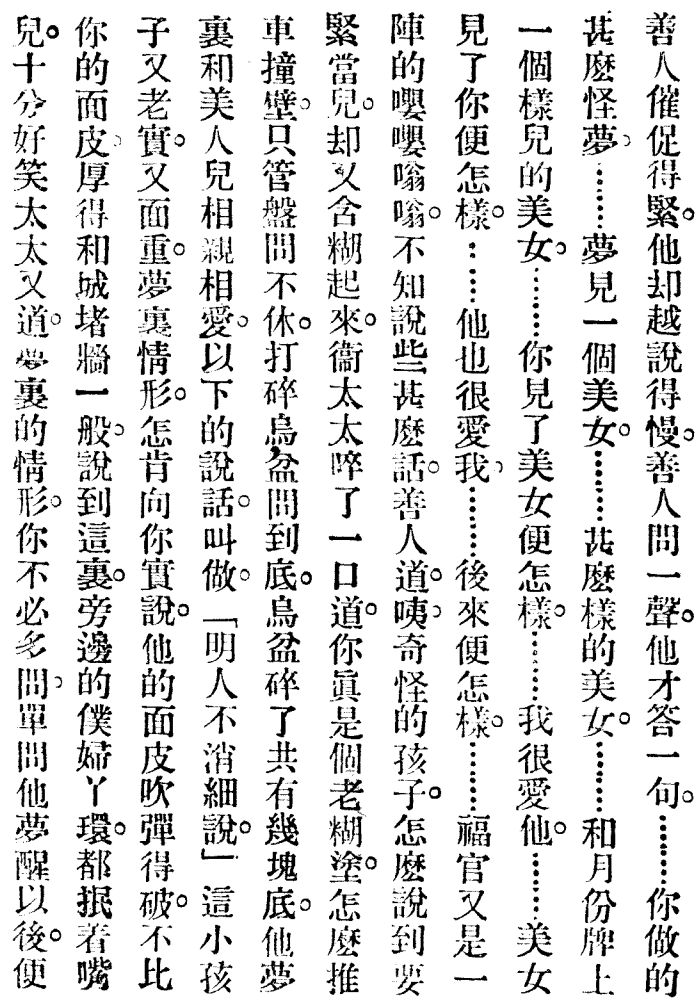 善人催促得緊。他却越說得慢。善人問一聲。他才答一句。……你做的
甚麽怪夢。……夢見一個美女。……甚麽樣的美女。……和月份牌上
一個樣兒的美女。……你見了美女便怎樣。……我很愛他。……美女
見了你便怎樣。……他也很愛我。……後來便怎樣。……福官又是一
陣的嚶嚶嗡嗡。不知說些甚麽話。善人道。咦。奇怪的孩子。怎麽說到要
緊當兒。却又含糊起來。衞太太啐了一口道。你眞是個老糊塗。怎麽推
車撞壁。只管盤問不休。打碎烏盆問到底。烏盆碎了共有幾塊底。他夢
裏和美人兒相親相愛。以下的說話。叫做「明人不消細說」這小孩
子又老實。又面重。夢裏情形。怎肯向你實說。他的面皮吹彈得破。不比
你的面皮。厚得和城堵牆一般。說到這裏。旁邊的僕婦丫環。都抿着嘴
兒。十分好笑太太又道。夢裏的情形。你不必多問。單問他夢醒以後。便